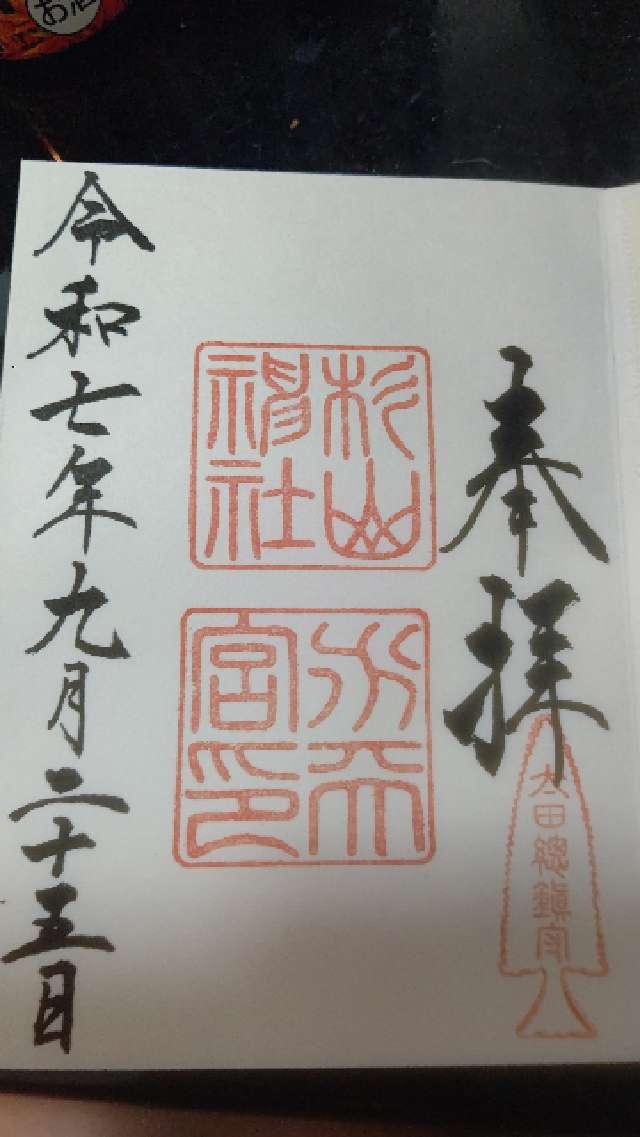 お酒
奉拝
太田總鎮守
杉山
神社
水天
宮印
令和七年九月二十五日